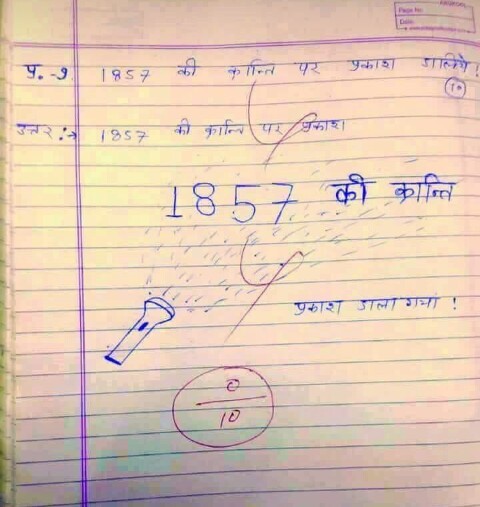 Page No.
Date:
प्र.-9. 1857 की क्रान्ति पर प्रकाश डालिये!
10
उत्तर :→ 1857 की क्रान्ति पर प्रकाश
1857 की क्रान्ति
प्रकाश डाला गया !
0
10